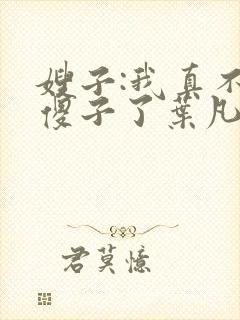 嫂子:我真不
傻子了葉凡
君莫憶